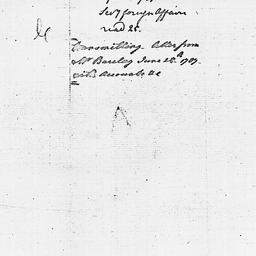 Secy foreign Affairs
read 25.
Transmitting letter from
Mr Barclay June 28th 1787
with Accounts &c
A